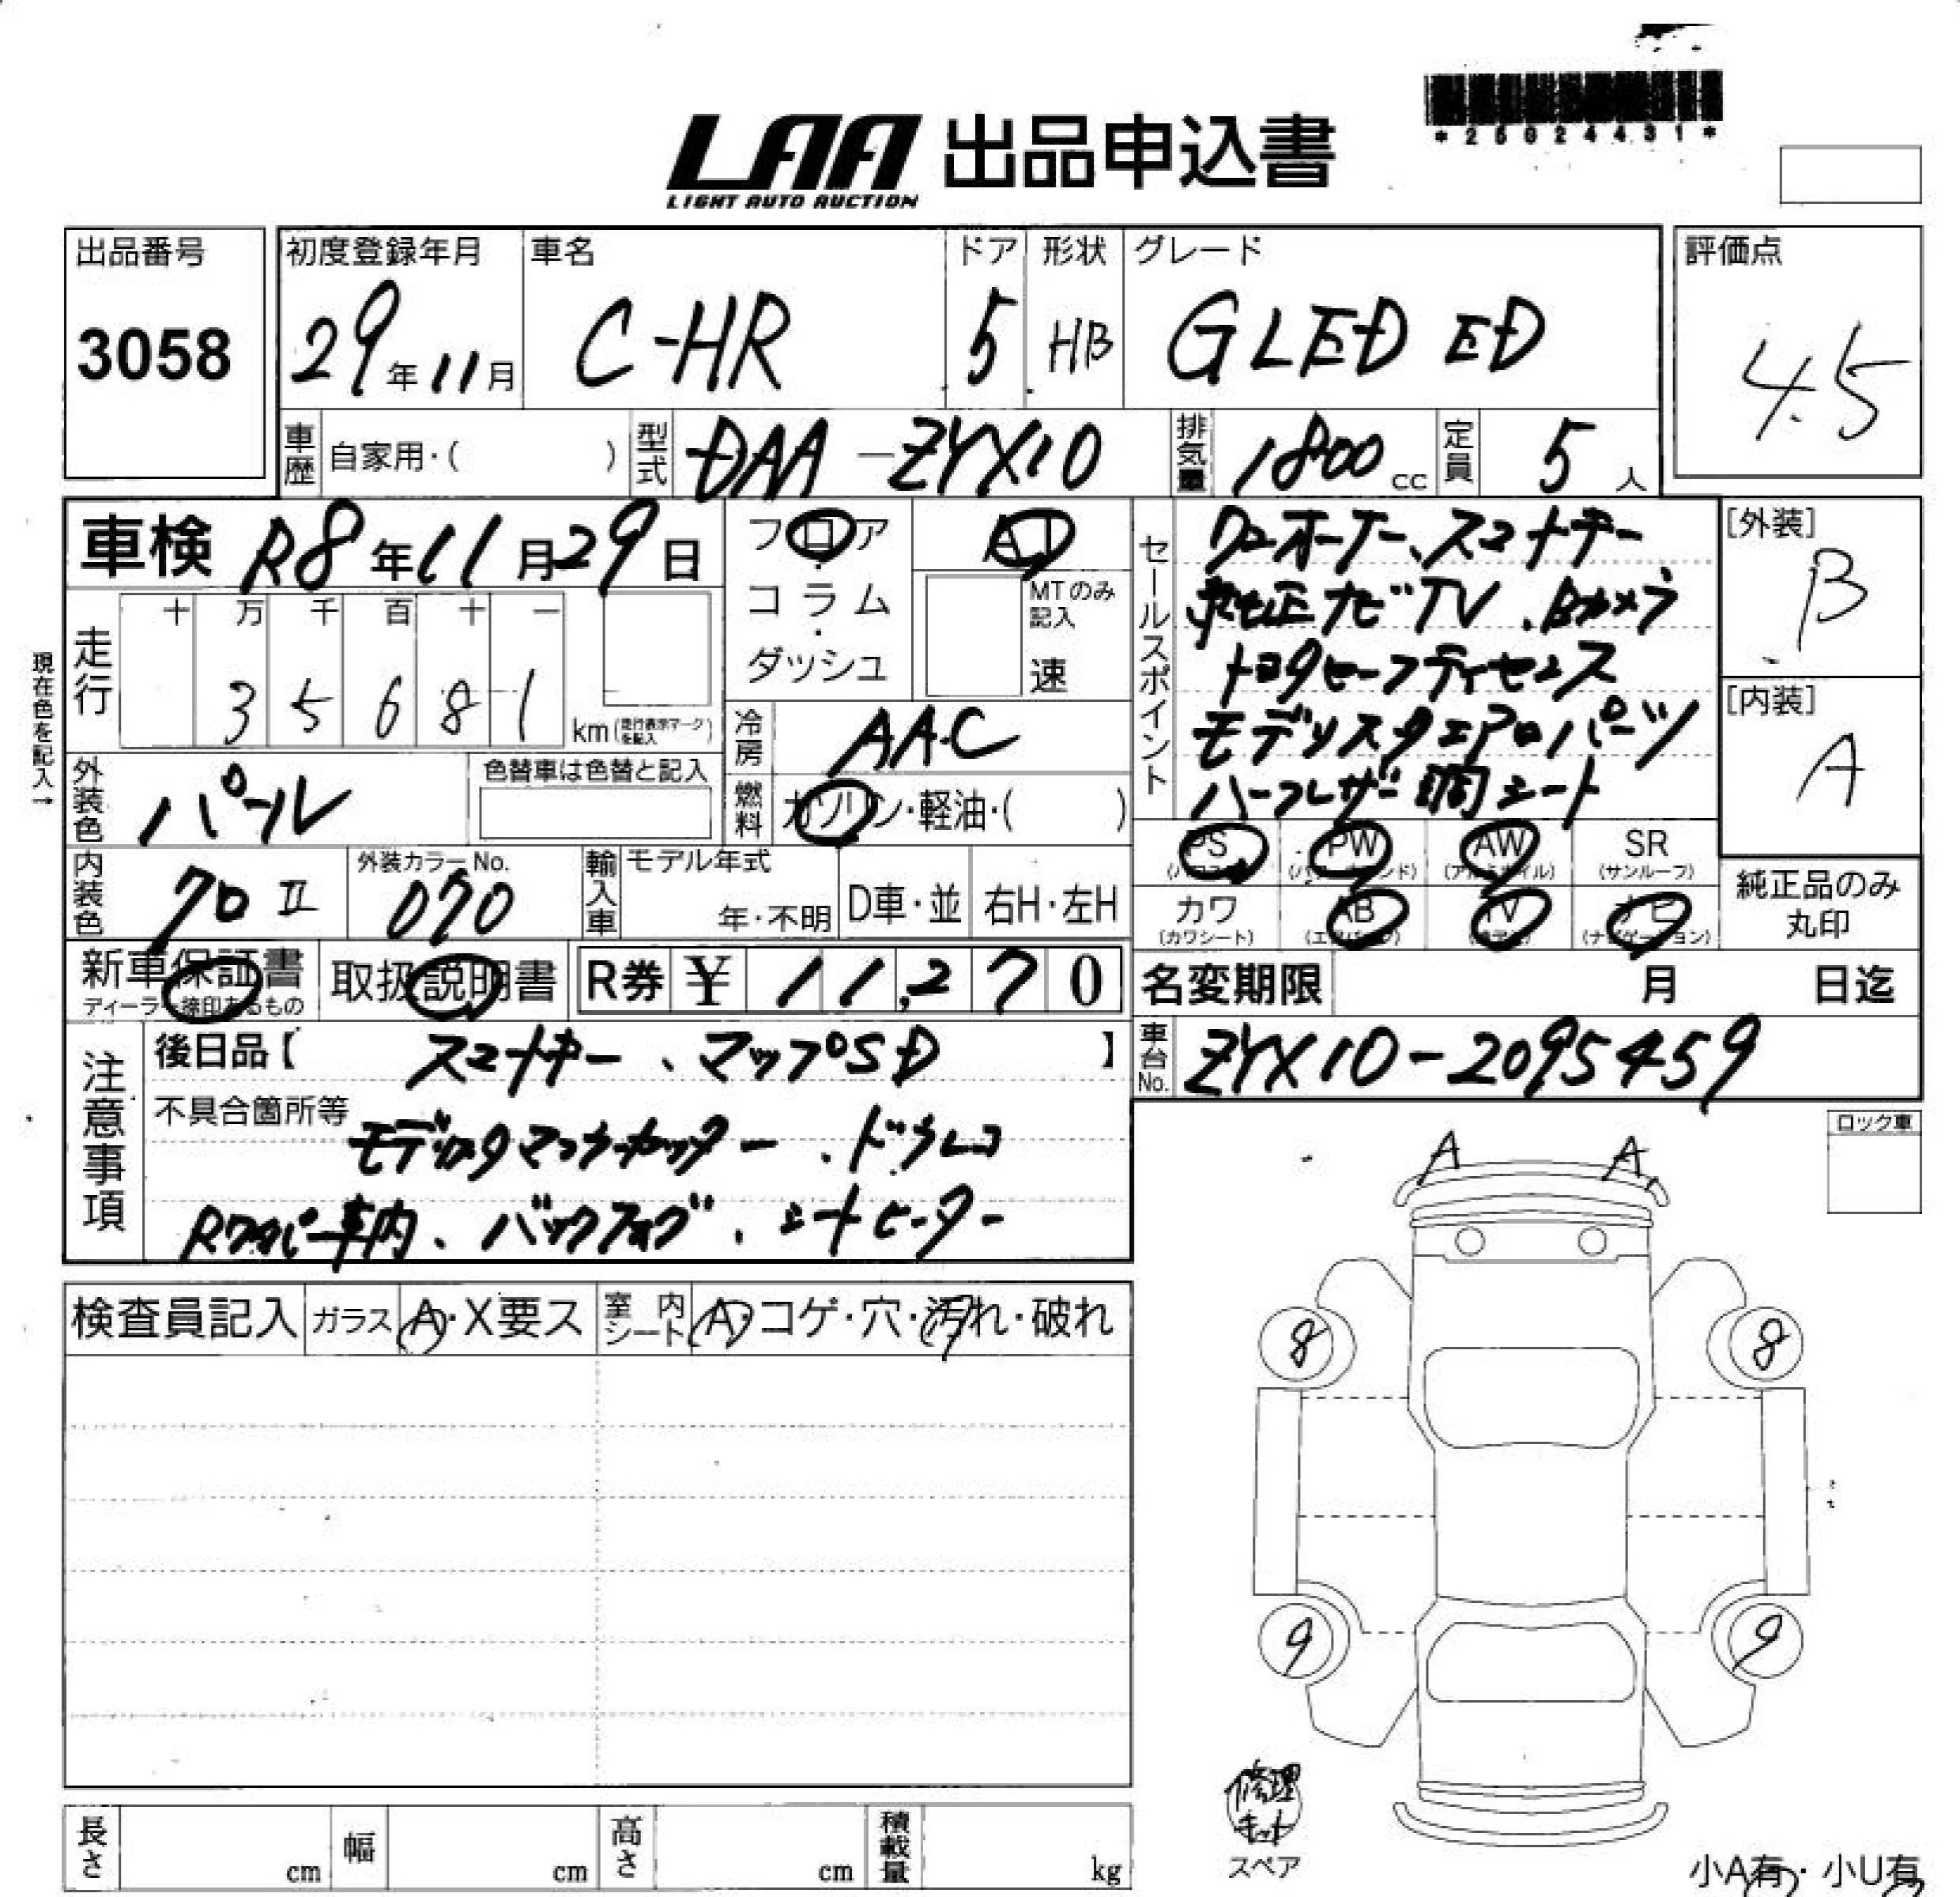 *25024431*
LAA 出品申込書
LIGHT AUTO AUCTION
出品番号 初度登録年月 車名 ドア 形状 グレード 評価点
3058 29年11月 C-HR 5 HB G LED ED 4.5
車歴 自家用・( ) 型式 DAA-ZYX10 排気量 1800cc 定員 5人
車検 R8年11月29日
フロア AT
コラム・ MTのみ記入
ダッシュ 速
セールスポイント
ワンオーナー、スマートキー
純正ナビTV、Bカメラ
トヨタセーフティセンス
モデリスタエアロパーツ
ハーフレザー調シート
[外装]
B
[内装]
A
現在色を記入→
走行 十 万 千 百 十 一
3 5 6 8 1 km(走行表示マークを記入)
冷房 AAC
外装色 パール 色替車は色替と記入
燃料 ガソリン・軽油・( )
PS PW AW SR
(サンルーフ)
カワ AB TV ナビ
(カワシート) (ナビゲーション)
純正品のみ
丸印
内装色 クロ II 外装カラーNo. 070 輸入車 モデル年式 年・不明 D車・並 右H・左H
新車保証書 取扱説明書 R券 ¥ 11,270
ディーラー捺印あるもの
名変期限 月 日迄
車台No. ZYX10-2095459
注意事項
後日品【 スマートキー、マップSD 】
不具合箇所等
モデリスタマフラーカッター、ドラレコ
車内、バックフォグ、シートヒーター
ロック車
A A
検査員記入 ガラス A・X要ス 室内シート A・コゲ・穴・汚れ・破れ
8 8
9 9
修理
キット
スペア
長さ cm 幅 cm 高さ cm 積載量 kg
小A有・小U有